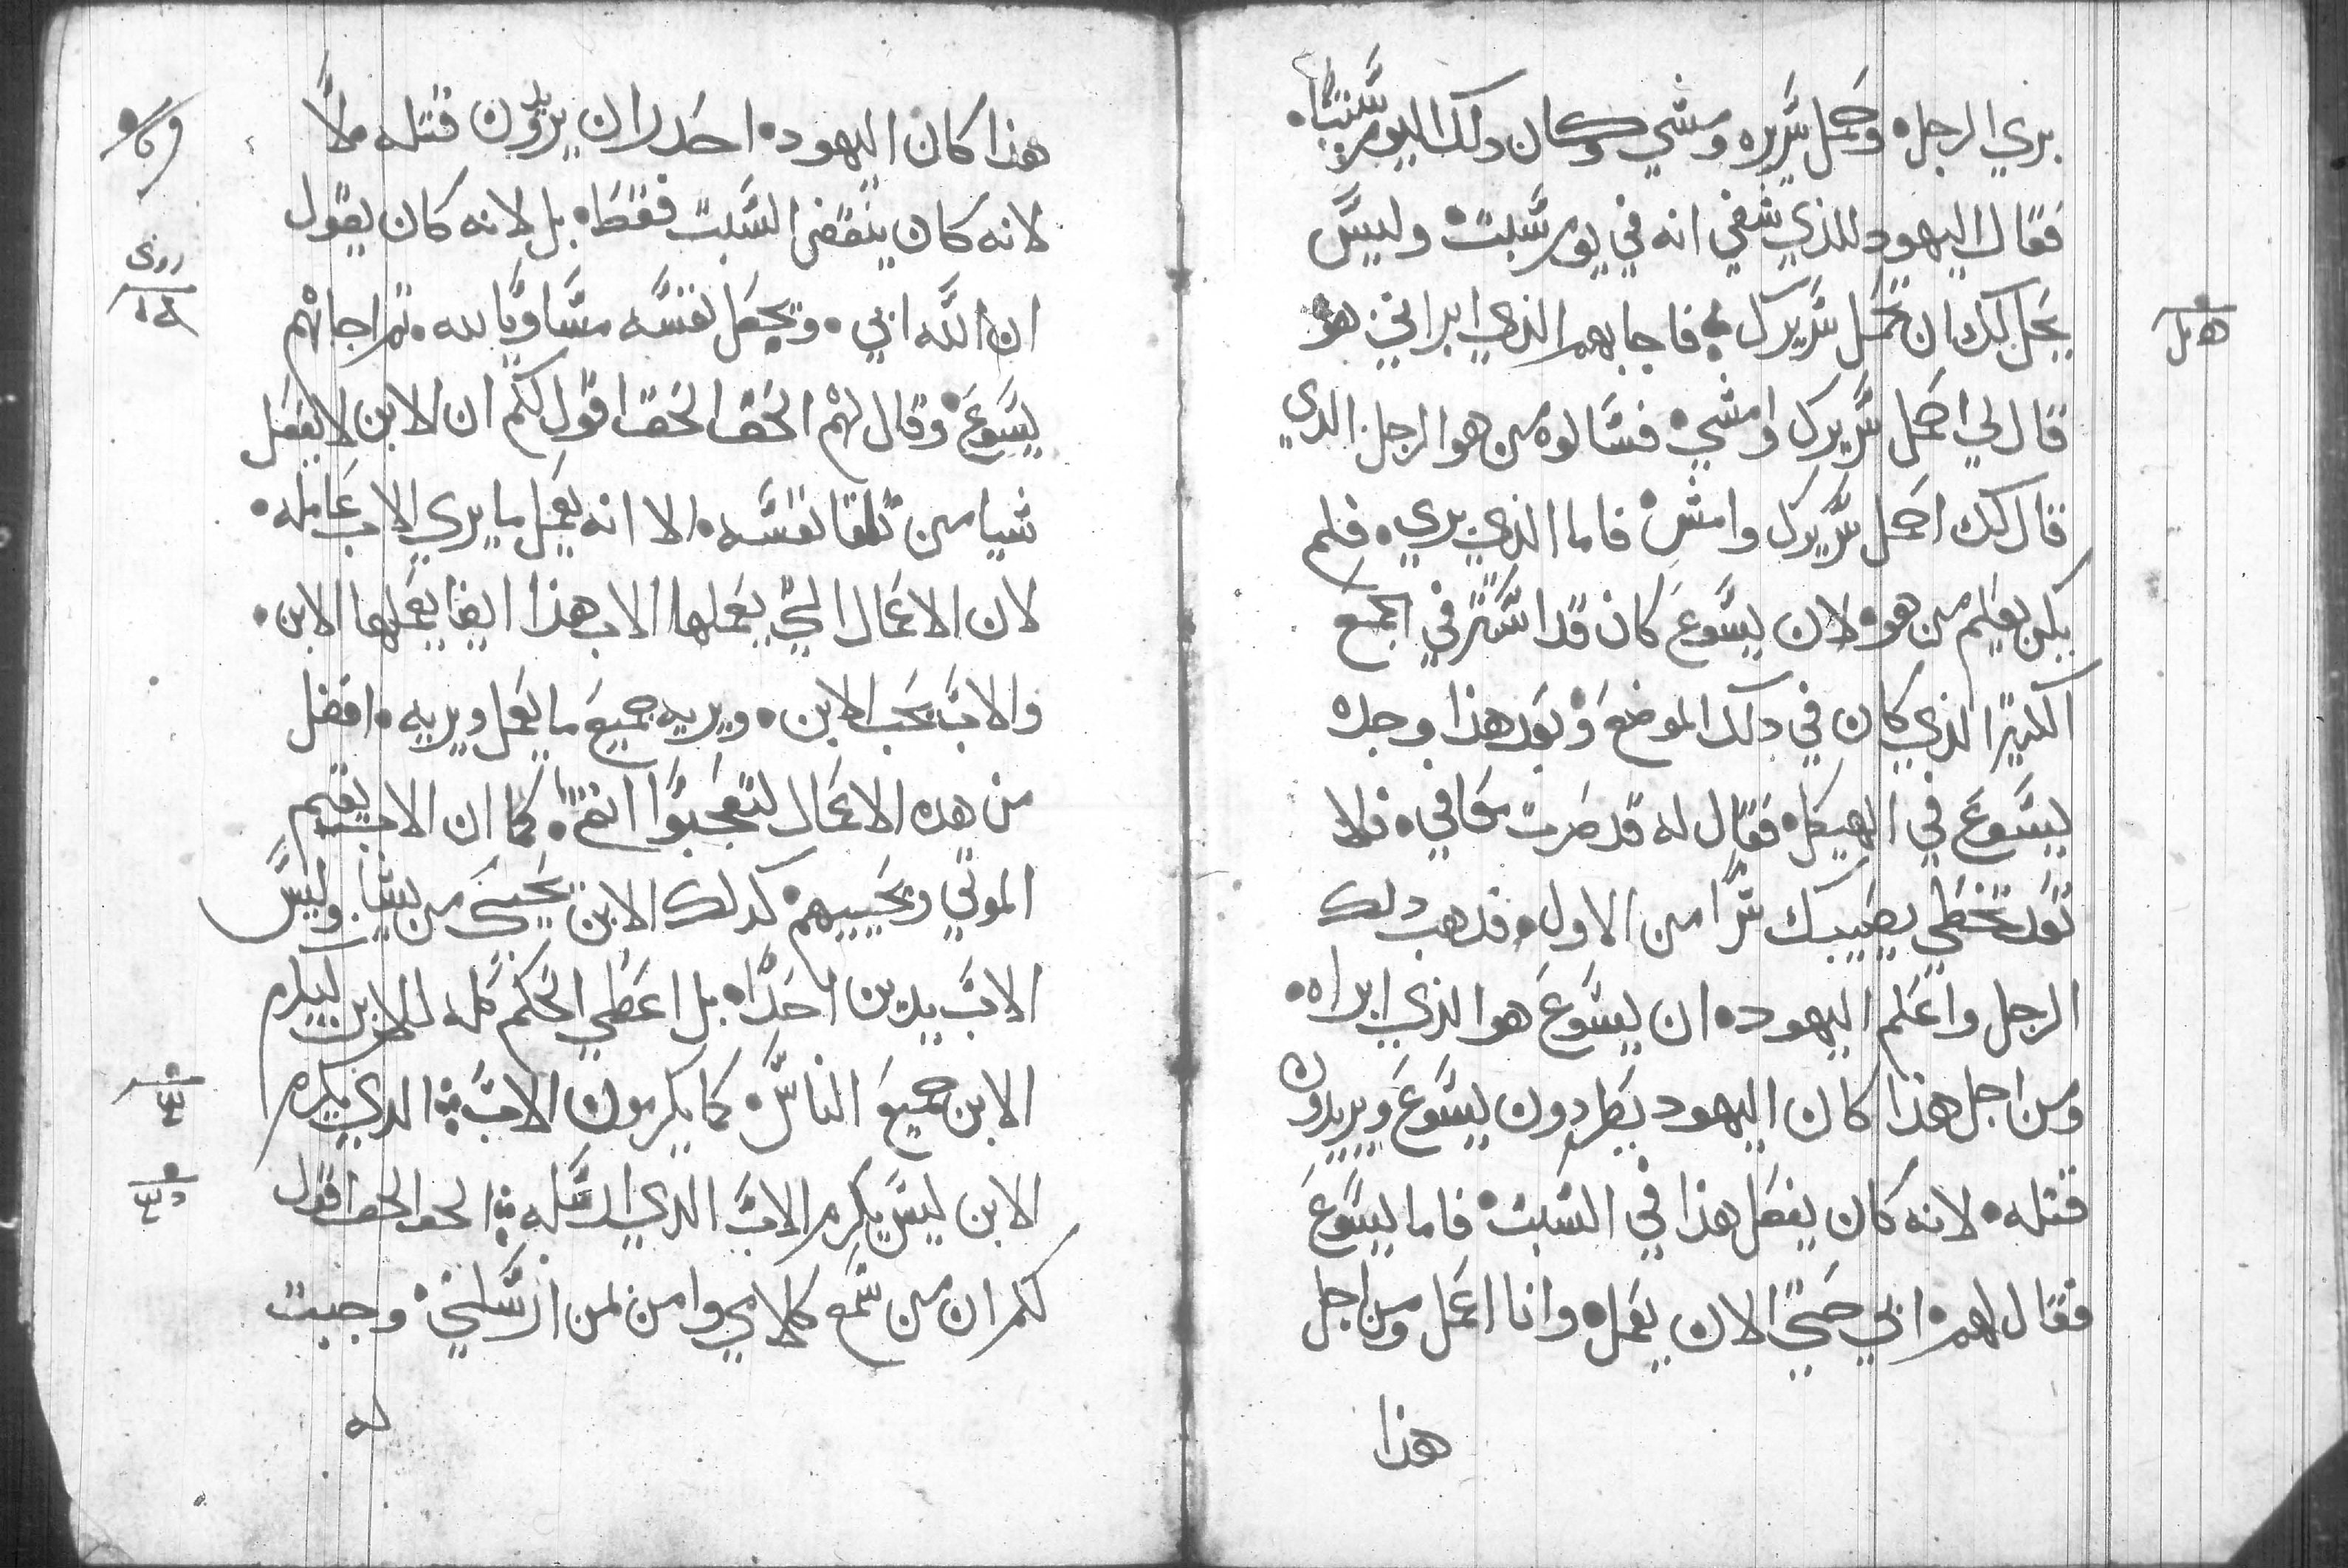 بري الرجل. وحمل سريره ومشي وكان دلك اليوم سبتا.
فقال اليهود للذي شفي انه في يوم سبت. وليس
يحل لك ان تحمل سريرك. فاجابهم الذي ابراني هو
قال لي احمل سريرك وامشي. فسالوه من هو الرجل الدي
قال لك احمل سريرك وامش. فاما الذي بري. فلم
يكن يعلم من هو. لان يسوع كان قد استتر في الجمع
الكبير الذي كان في دلك الموضع. وبعد هذا وجده
يسوع في الهيكل. فقال له قد صرت معافي. فلا
تعد تخطي يصيبك شرا من الاول. فدهب دلك
الرجل واعلم اليهود. ان يسوع هو الذي ابراه.
ومن اجل هذا كان اليهود يطردون يسوع ويريدون
قتله. لانه كان يفعل هذا في السبت. فاما يسوع
فقال لهم. ابي حتي الان يعمل. وانا اعمل ومن اجل
هذا
هذا كان اليهود. احدر ان يريدون قتله. لا
لانه كان ينقض السبت فقط. بل لانه كان يقول
ان الله ابي. ويجعل نفسه مساويا لله. تم اجابهم
يسوع. وقال لهم الحق الحق اقول لكم ان الابن لا يفعل
شيا من تلقا نفسه. الا انه يعمل ما يري الاب عامله.
لان الاعمال التي يعملها الاب هذا ايضا يعملها الابن.
والاب يحب الابن. ويريه جميع ما يعمل ويريه. افضل
من هده الاعمال لتعجبوا انتم. كما ان الاب يقيم
الموتي ويحييهم. كدلك الابن يحيي من يشا. وليس
الاب يدين احدا. بل اعطي الحكم كله للابن ليكرم
الابن جميع الناس. كما يكرمون الاب. الدي يكرم
الابن ليس يكرم الاب الدي ارسله. الحق الحق اقول
لكم ان من سمع كلامي وامن لمن ارسلني. وجبت
له